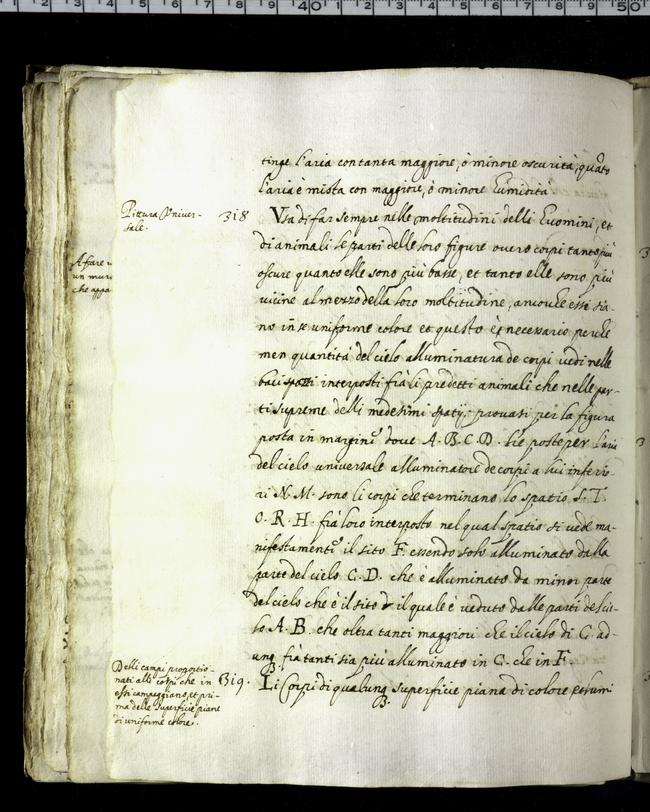 tinge l'aria con tanta maggiore, ò minore oscurità, quãto
l'aria è mista con maggiore, ò minore humidità
Pittura Univer-
sale.
318
Usa di far sempre nelle moltitudini delli huomini, et
di animali le parti delle loro figure overo corpi tanto più
oscure quanto elle sono più basse, et tanto elle sono più
vicine al mezzo della loro moltitudine, ancorche essi sia-
no in se uniforme colore et questo è necessario perche
men quantità del cielo alluminatura de corpi vedi nelle
bassi spatii interposti frà li predetti animali che nelle par-
ti supreme delli medesimi spatij: provasi per la figura
posta in margine dove A. B. C. D. è posto per l'arco
del cielo universale alluminatore de corpi a lui inferio-
ri N. M. sono li corpi che terminano lo spatio S. T.
O. R. H. frà loro interposto nel qual spatio si vede ma-
nifestamente il sito F. essendo solo alluminato dalla
parte del cielo C. D. che è alluminato da minor parte
del cielo che è il sito il quale è veduto dalle parti del cie-
lo A. B. che oltra tanti maggiori che il cielo di C. ad-
unq. fia tanti sia più alluminato in C. che in F.
Delli campi proportio-
nati alli corpi che in
essi campeggiano, et pri-
ma delle superficie piane
di uniforme colore.
319.
Li Corpi di qualunq. superficie piana di colore et lum-
A fare
un muro
che appa